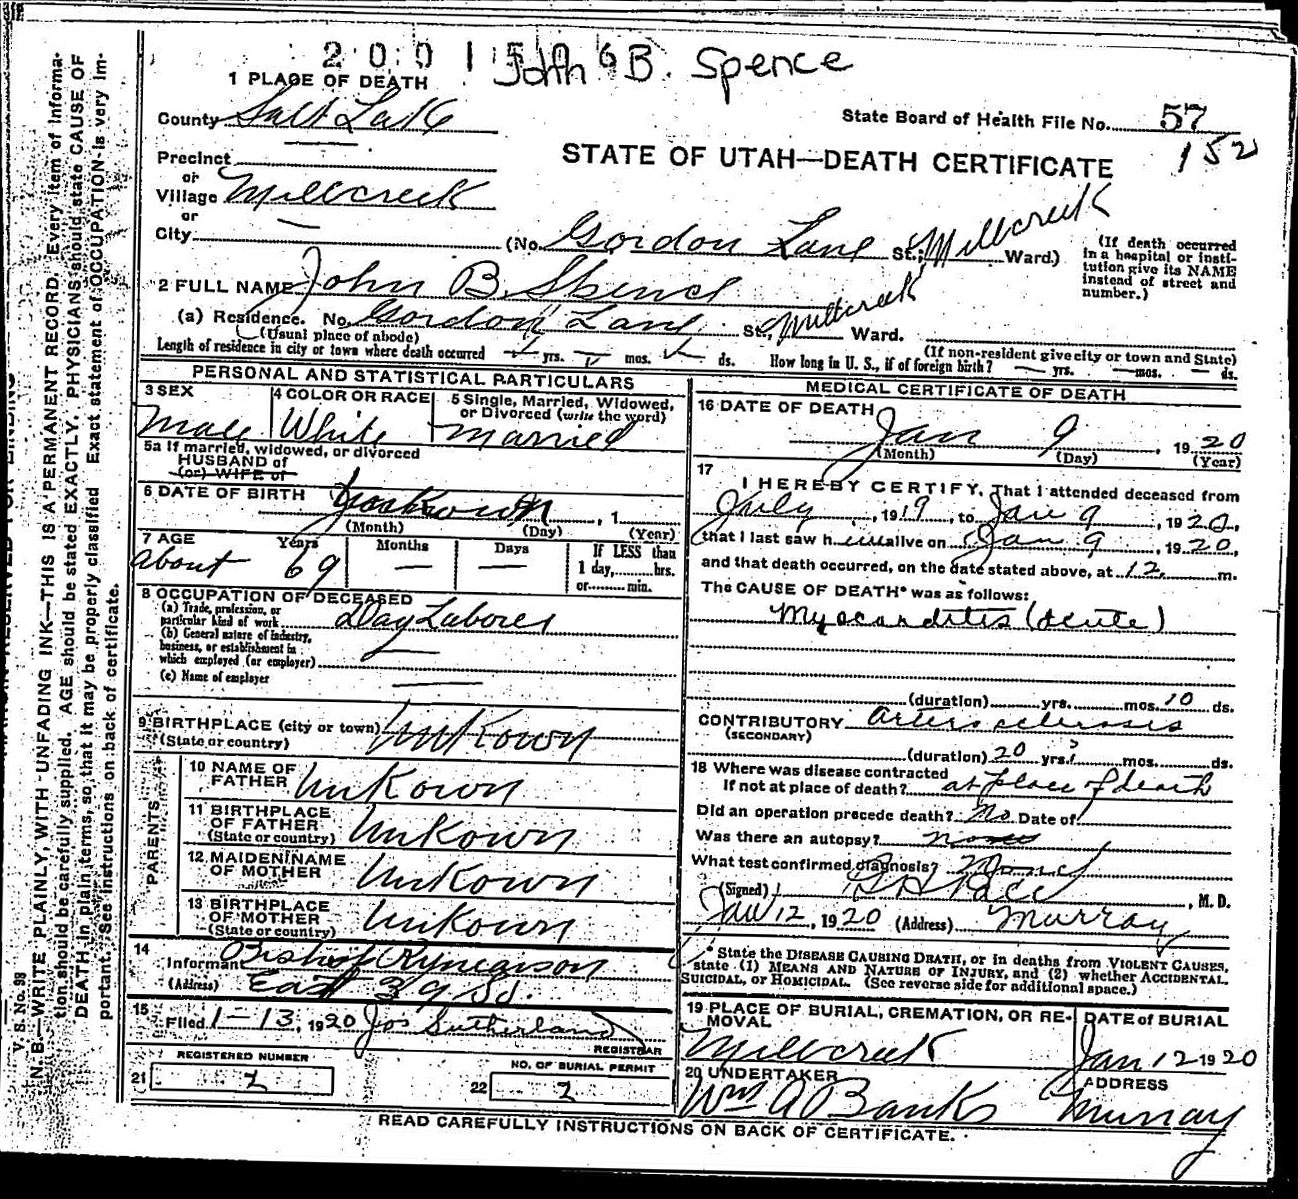 2001506
John B. Spence
1 PLACE OF DEATH
County Salt Lake
State Board of Health File No. 57
152
STATE OF UTAH—DEATH CERTIFICATE
Precinct
or
Village Millcreek
or
City
(No. Gordon Lane St.; Millcreek Ward.)
(If death occurred in a hospital or institution give its NAME instead of street and number.)
2 FULL NAME John B. Spence
(a) Residence. No. Gordon Lane St., Millcreek Ward.
(Usual place of abode)
(If non-resident give city or town and State)
Length of residence in city or town where death occurred yrs. mos. ds. How long in U. S., if of foreign birth? — yrs. — mos. — ds.
PERSONAL AND STATISTICAL PARTICULARS
3 SEX
Male
4 COLOR OR RACE
White
5 Single, Married, Widowed, or Divorced (write the word)
Married
5a If married, widowed, or divorced
HUSBAND of
(or) WIFE of
6 DATE OF BIRTH
(Month) (Day) , 1 (Year)
7 AGE
Years Months Days
If LESS than 1 day, hrs. or min.
about 69 — —
8 OCCUPATION OF DECEASED
(a) Trade, profession, or particular kind of work Day Laborer
(b) General nature of industry, business, or establishment in which employed (or employer) —
(c) Name of employer —
9 BIRTHPLACE (city or town) UnKown
(State or country)
PARENTS
10 NAME OF FATHER UnKown
11 BIRTHPLACE OF FATHER UnKown
(State or country)
12 MAIDEN NAME OF MOTHER UnKown
13 BIRTHPLACE OF MOTHER UnKown
(State or country)
14
Informant Bishop Rynearson
(Address) East 39 So.
15
Filed 1-13, 1920 Jos Sutherland
REGISTRAR
REGISTERED NUMBER
21 2
NO. OF BURIAL PERMIT
22 2
MEDICAL CERTIFICATE OF DEATH
16 DATE OF DEATH
Jan 9, 1920
(Month) (Day) (Year)
17
I HEREBY CERTIFY, That I attended deceased from
July, 1919, to Jan 9, 1920,
that I last saw him alive on Jan 9, 1920,
and that death occurred, on the date stated above, at 12 m.
The CAUSE OF DEATH* was as follows:
Myocarditis (acute)
(duration) yrs. mos. 10 ds.
CONTRIBUTORY Arterio sclerosis
(SECONDARY)
(duration) 20 yrs.? mos. ds.
18 Where was disease contracted
If not at place of death? at place of death
Did an operation precede death? No Date of
Was there an autopsy?
What test confirmed diagnosis?
(Signed) , M. D.
Jan 12, 1920 (Address) Murray
* State the DISEASE CAUSING DEATH, or in deaths from VIOLENT CAUSES, state (1) MEANS AND NATURE OF INJURY, and (2) whether ACCIDENTAL, SUICIDAL, or HOMICIDAL. (See reverse side for additional space.)
19 PLACE OF BURIAL, CREMATION, OR REMOVAL
Millcreek
DATE of BURIAL
Jan 12 1920
20 UNDERTAKER
Wm A Banks
ADDRESS
Murray
READ CAREFULLY INSTRUCTIONS ON BACK OF CERTIFICATE.
V. S. No. 98
N. B.—WRITE PLAINLY, WITH UNFADING INK—THIS IS A PERMANENT RECORD. Every item of information should be carefully supplied. AGE should be stated EXACTLY. PHYSICIANS should state CAUSE OF DEATH in plain terms, so that it may be properly classified. Exact statement of OCCUPATION is very important. See instructions on back of certificate.